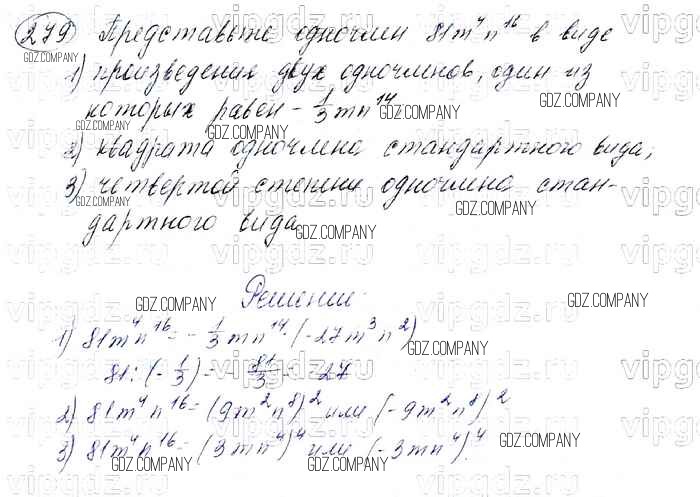 279 Представьте одночлен 81m⁴n¹⁶ в виде
1) произведения двух одночленов, один из
которых равен -1/3mn¹⁴
2) квадрата одночлена стандартного вида,
3) четвертой степени одночлена стан-
дартного вида
Решение
1) 81m⁴n¹⁶ = -1/3mn¹⁴·(-27m³n²)
81:(-1/3) = -81/3 = -27
2) 81m⁴n¹⁶ = (9m²n⁸)² или (-9m²n⁸)²
3) 81m⁴n¹⁶ = (3mn⁴)⁴ или (-3mn⁴)⁴.
GDZ.COMPANY
vipgdz.ru